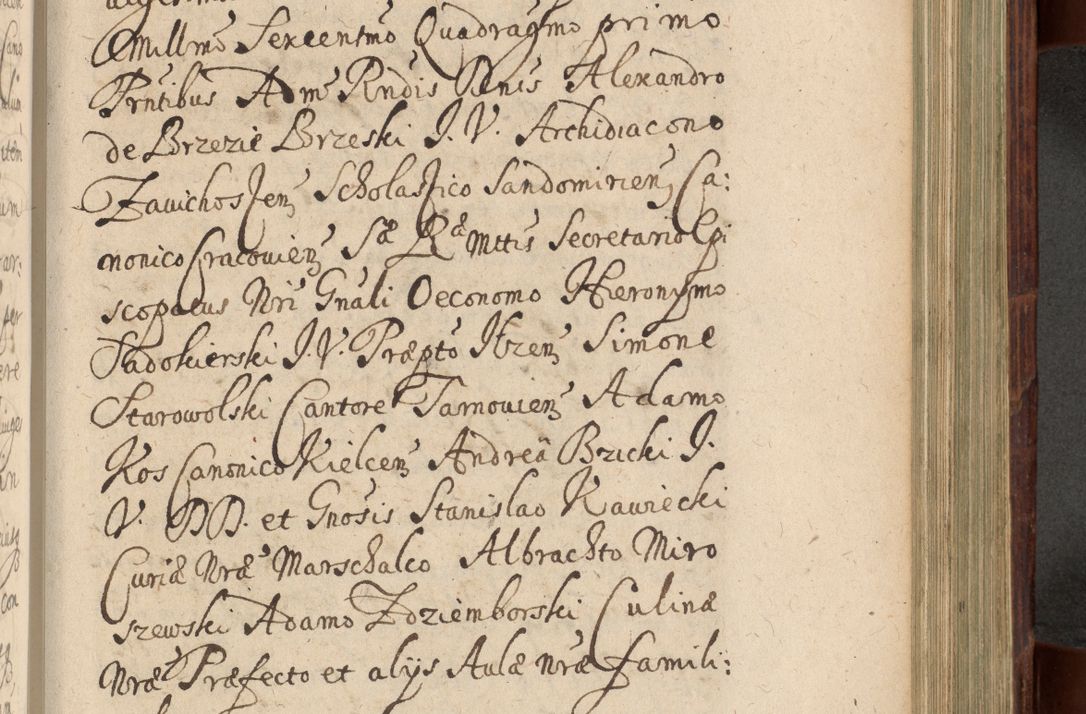 Millmo Sexcentmo Quadragmo primo
Prntibus Adm Rndis Dnis Alexandro
de Brzezie Brzeski J. V. Archidiacono
Zavichosten Scholastico Sandomirien Ca:
nonico Cracovien Sæ Ræ Mttis Secretario Epi
scopatus Nri Gnāli Oeconomo Hieronymo
Sadokierski J. V. Præpto Ilzen Simone
Starowolski Cantore Tarnovien Adamo
Kos Canonico Kielcen Andreā Bzicki J.
V. DD. et Gnosis Stanislao Kawiecki
Curiæ Nræ Marschalco Albrachto Miro
szewski Adamo Zdziemborski Culinæ
Nræ Præfecto et alijs Aulæ nræ famili: